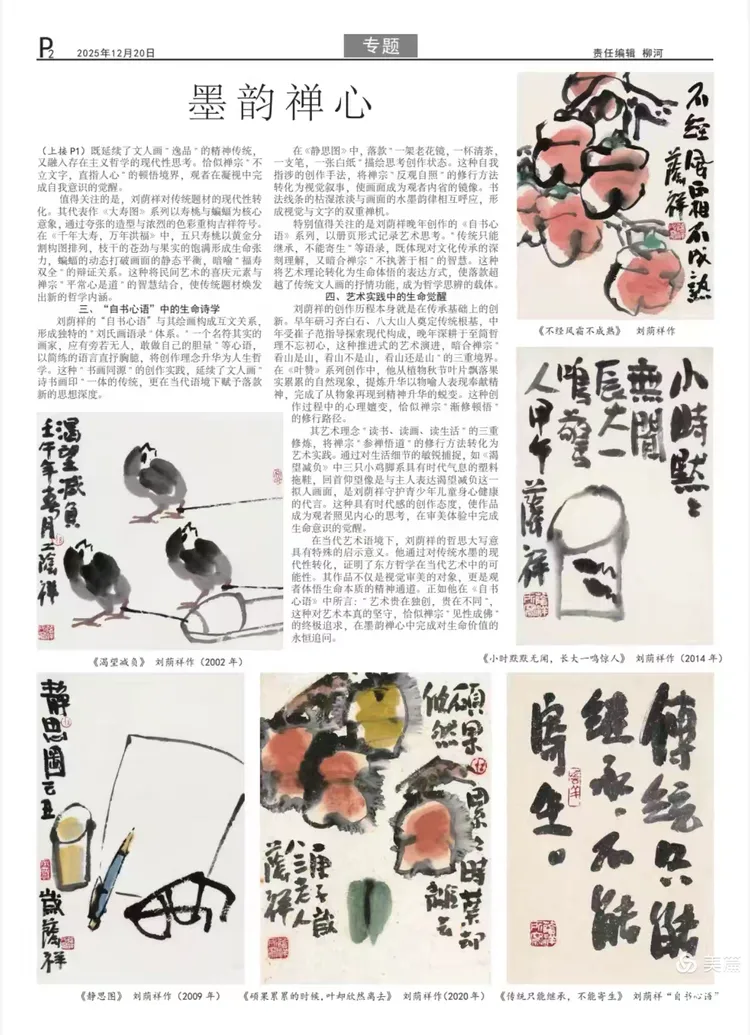 P2
2025年12月20日
专题
责任编辑 柳河
墨韵禅心
（上接P1）既延续了文人画“逸品”的精神传统，
又融入存在主义哲学的现代性思考。恰似禅宗“不
立文字，直指人心”的顿悟境界，观者在凝视中完
成自我意识的觉醒。
值得关注的是，刘荫祥对传统题材的现代性转
化。其代表作《大寿图》系列以寿桃与蝙蝠为核心
意象，通过夸张的造型与浓烈的色彩重构吉祥符号。
在《千年大寿，万年洪福》中，五只寿桃以黄金分
割构图排列，枝干的苍劲与果实的饱满形成生命张
力，蝙蝠的动态打破画面的静态平衡，暗喻“福寿
双全”的辩证关系。这种将民间艺术的喜庆元素与
禅宗“平常心是道”的智慧结合，使传统题材焕发
出新的哲学内涵。
三、“自书心语”中的生命诗学
刘荫祥的“自书心语”与其绘画构成互文关系，
形成独特的“刘氏画语录”体系。“一个名符其实的
画家，应有旁若无人，敢做自己的胆量”等心语，
以简练的语言直抒胸臆，将创作理念升华为人生哲
学。这种“书画同源”的创作实践，延续了文人画“
诗书画印”一体的传统，更在当代语境下赋予落款
新的思想深度。
在《静思图》中，落款“一架老花镜，一杯清茶，
一支笔，一张白纸”描绘思考创作状态。这种自我
指涉的创作手法，将禅宗“反观自照”的修行方法
转化为视觉叙事，使画面成为观者内省的镜像。书
法线条的枯湿浓淡与画面的水墨韵律相互呼应，形
成视觉与文字的双重禅机。
特别值得关注的是刘荫祥晚年创作的《自书心
语》系列，以册页形式记录艺术思考。“传统只能
继承，不能寄生”等语录，既体现对文化传承的深
刻理解，又暗合禅宗“不执著于相”的智慧。这种
将艺术理论转化为生命体悟的表达方式，使落款超
越了传统文人画的抒情功能，成为哲学思辨的载体。
四、艺术实践中的生命觉醒
刘荫祥的创作历程本身就是在传承基础上的创
新。早年研习齐白石、八大山人奠定传统根基，中
年受崔子范指导探索现代构成，晚年深耕于至简哲
理不忘初心，这种推进式的艺术演进，暗合禅宗“
看山是山，看山不是山，看山还是山”的三重境界。
在《叶赞》系列创作中，他从植物秋节叶片飘落果
实累累的自然现象，提炼升华以物喻人表现奉献精
神，完成了从物象再现到精神升华的蜕变。这种创
作过程中的心理嬗变，恰似禅宗“渐修顿悟”
的修行路径。
其艺术理念“读书、读画、读生活”的三重
修炼，将禅宗“参禅悟道”的修行方法转化为
艺术实践。通过对生活细节的敏锐捕捉，如《渴
望减负》中三只小鸡脚系具有时代气息的塑料
拖鞋，回首仰望像是与主人表达渴望减负这一
拟人画面，是刘荫祥守护青少年儿童身心健康
的代言。这种具有时代感的创作态度，使作品
成为观者照见内心的思考，在审美体验中完成
生命意识的觉醒。
在当代艺术语境下，刘荫祥的哲思大写意
具有特殊的启示意义。他通过对传统水墨的现
代性转化，证明了东方哲学在当代艺术中的可
能性。其作品不仅是视觉审美的对象，更是观
者体悟生命本质的精神通道。正如他在《自书
心语》中所言：“艺术贵在独创，贵在不同”，
这种对艺术本真的坚守，恰似禅宗“见性成佛”
的终极追求，在墨韵禅心中完成对生命价值的
永恒追问。
不经風霜不成熟
蔭祥
《不经风霜不成熟》 刘荫祥作
小時默々
無聞
長大一
鳴驚
人甲午
蔭祥
《小时默默无闻，长大一鸣惊人》 刘荫祥作（2014年）
渴望减負
壬午年春月
蔭祥
《渴望减负》 刘荫祥作（2002年）
静思圖己丑
歲蔭祥
《静思图》 刘荫祥作（2009年）
碩果
累々時葉却
欣然
離去
庚子歲
八三老人
蔭祥
《硕果累累的时候，叶却欣然离去》 刘荫祥作（2020年）
傳統只能
继承，不能
寄生。
《传统只能继承，不能寄生》 刘荫祥“自书心语”
美篇